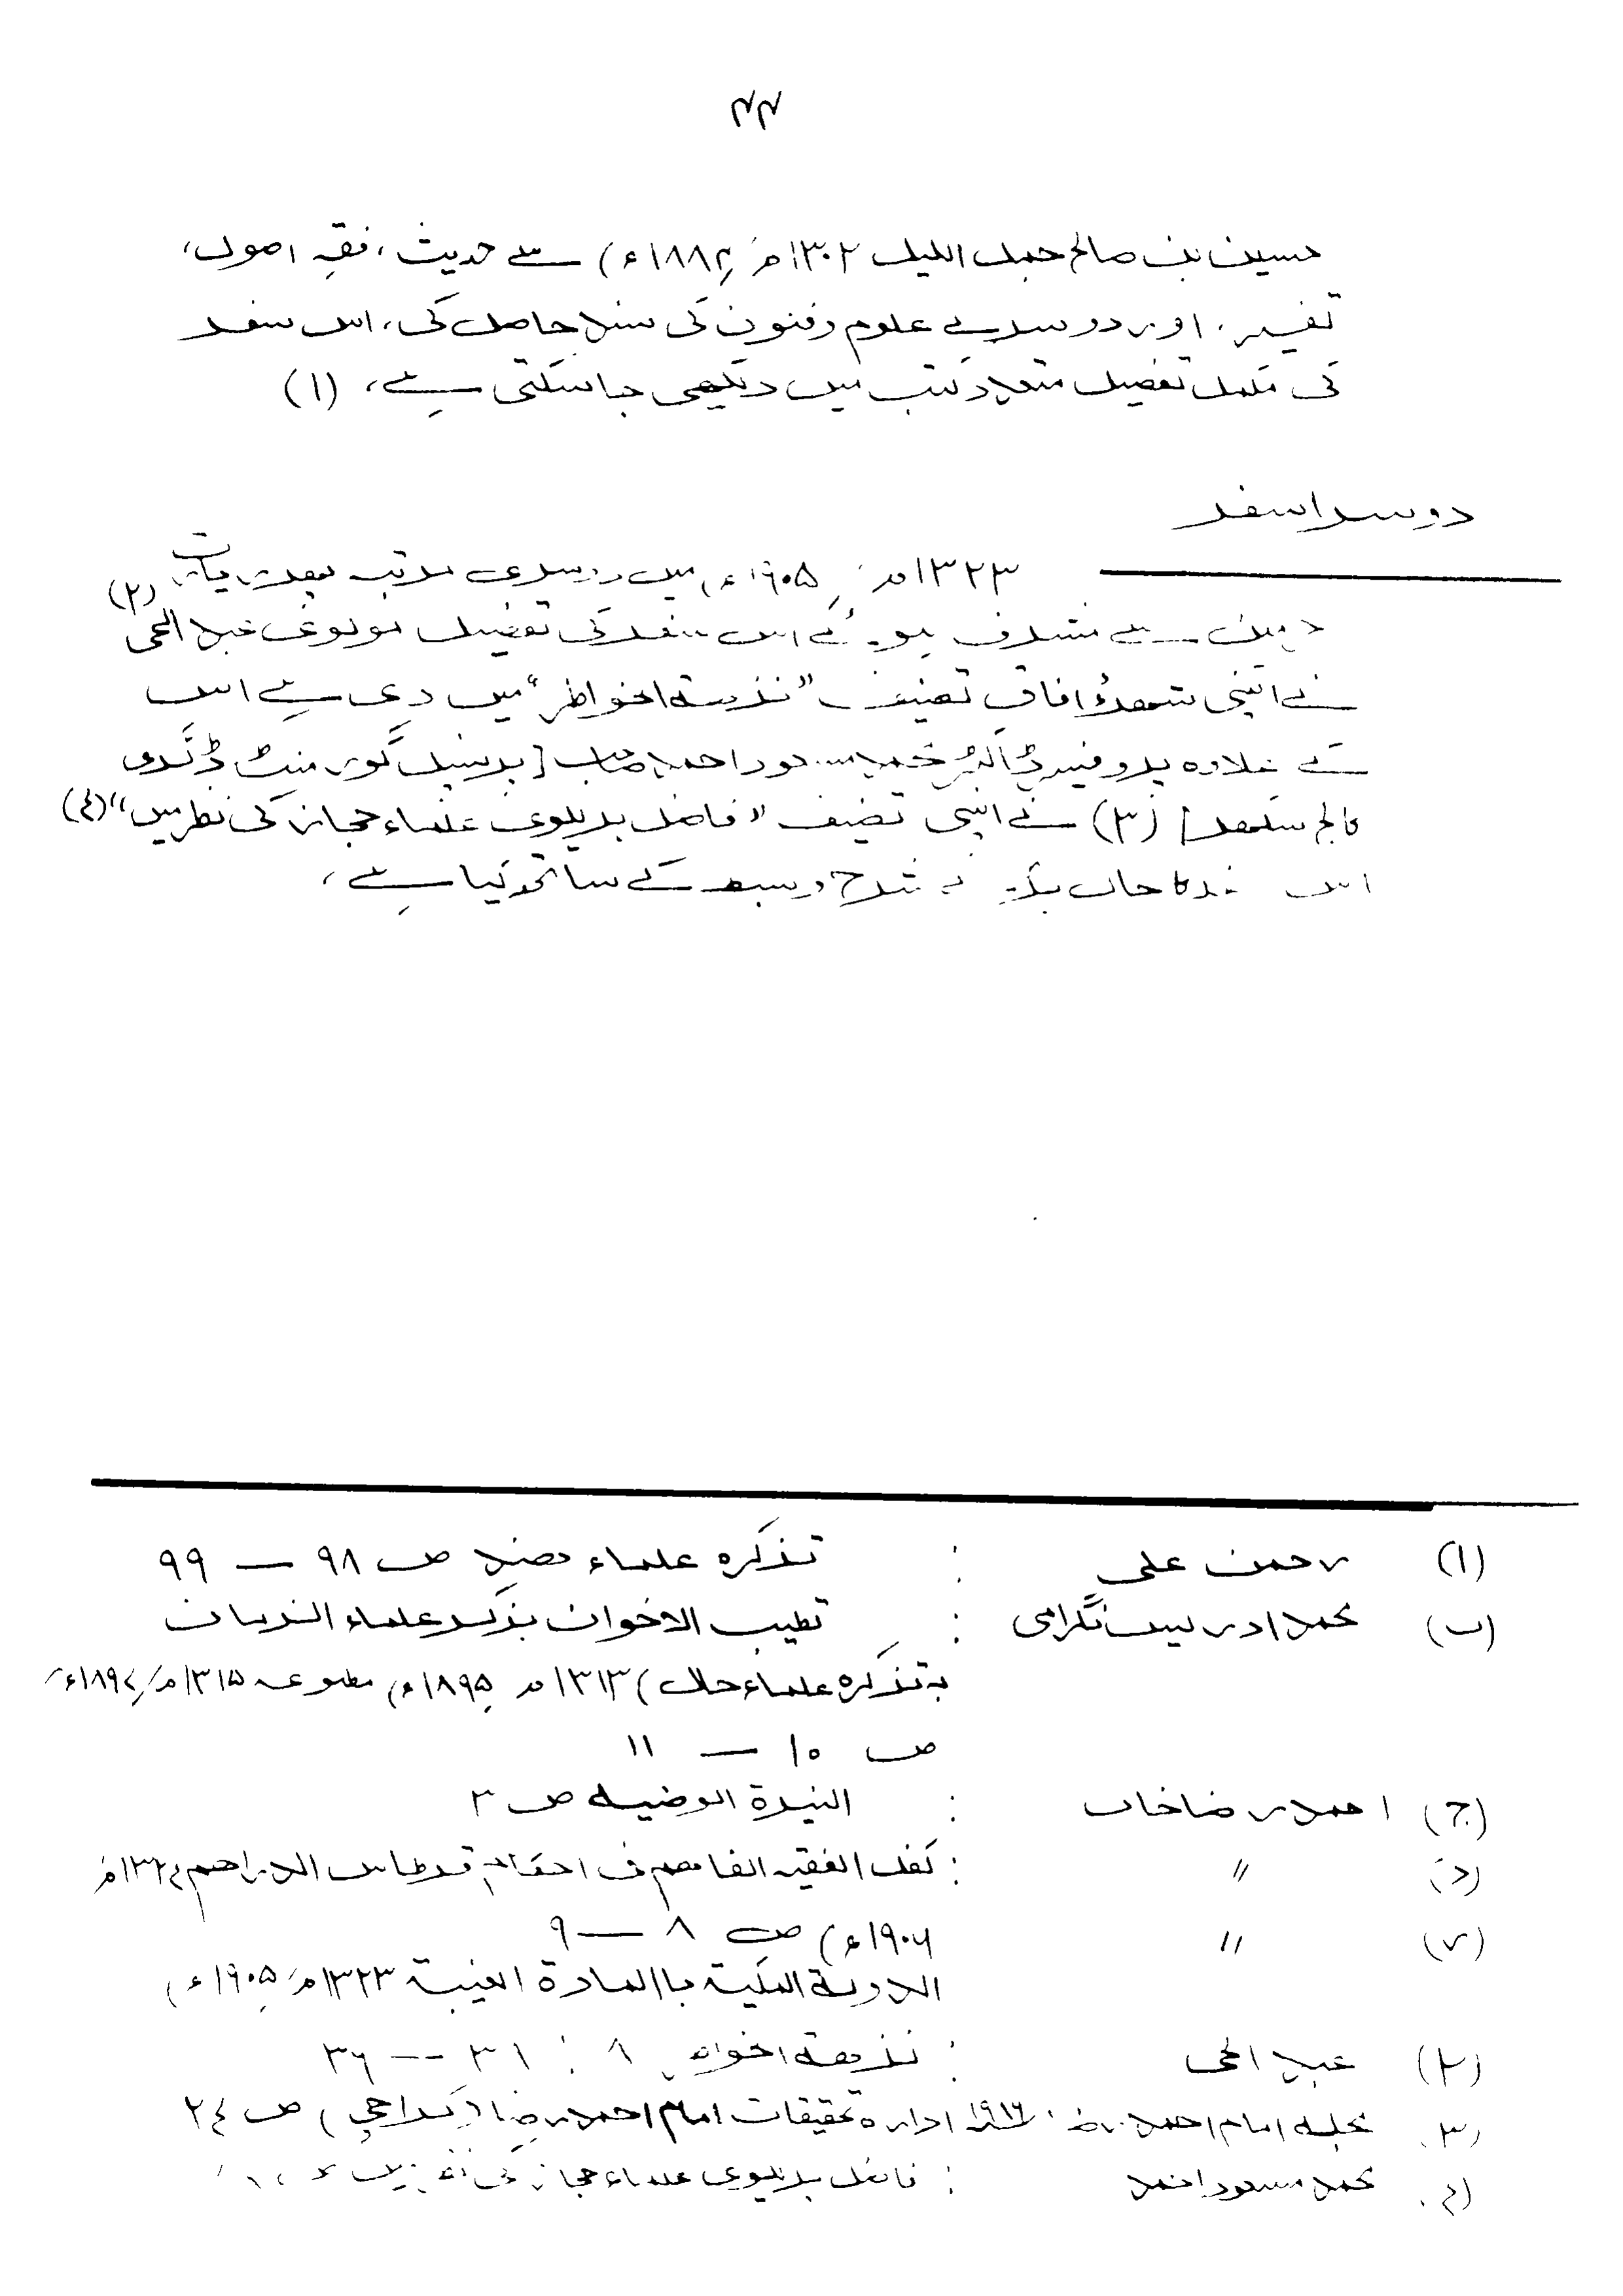 ۴۴
حسین بن صالح جمل اللیل ۱۳۰۲ھ؍ ۱۸۸۴ء) سے حدیث، فقہ اصول،
تفسیر، اور دوسرے علوم وفنون کی سند حاصل کی، اس سفر
کی مکمل تفصیل متعدد کتب میں دیکھی جا سکتی ہے، (۱)
دوسرا سفر
۱۳۲۳ھ؍ ۱۹۰۵ء) میں دوسری مرتبہ پھر زیارت
(۲)
سے مشرف ہوئے اس سفر کی تفصیل مولوی عبدالحی
نے اپنی شہرۂ آفاق تصنیف "نزہۃ الخواطر" میں دی ہے اس
کے علاوہ پروفیسر ڈاکٹر محمد مسعود احمد صاحب [پرنسپل گورنمنٹ ڈگری
کالج سکھر] (۳) نے اپنی تصنیف "فاضل بریلوی علماء حجاز کی نظر میں" (٤)
اس کا شرح وبسط کے ساتھ کیا ہے،
(۱) رحمن علی : تذکرہ علماء ھند ص ۹۸ — ۹۹
(ب) محمد ادریس نگرامی : تطیب الاخوان بذکر علماء الزمان
بہ تذکرہ علماء حال) ۱۳۱۳ھ ۱۸۹۵ء) مطبوعہ ۱۳۱۵ھ؍ ۱۸۹۷ء؍
ص ۱۰ — ۱۱
(ج) احمد رضا خاں : النیرۃ الوضیہ ص ۳
(د) ؍؍ : کفل الفقیہ الفاھم فی احکام قرطاس الدراھم ۱۳۲٤ھ
(ر) ؍؍ ۱۹۰۶ء) ص ۸ — ۹
الدولۃ المکیۃ باالمادۃ الغیبۃ ۱۳۲۳ھ؍ ۱۹۰۵ء)
(۲) عبد الحی : نزھۃ الخواطر ۸ : ۳۸ -- ۳۶
(۳) مجلہ امام احمد رضا ادارہ تحقیقات امام احمد رضا (کراچی) ص ۲٤
(٤) محمد مسعود احمد : فاضل بریلوی علماء حجاز کی نظر میں